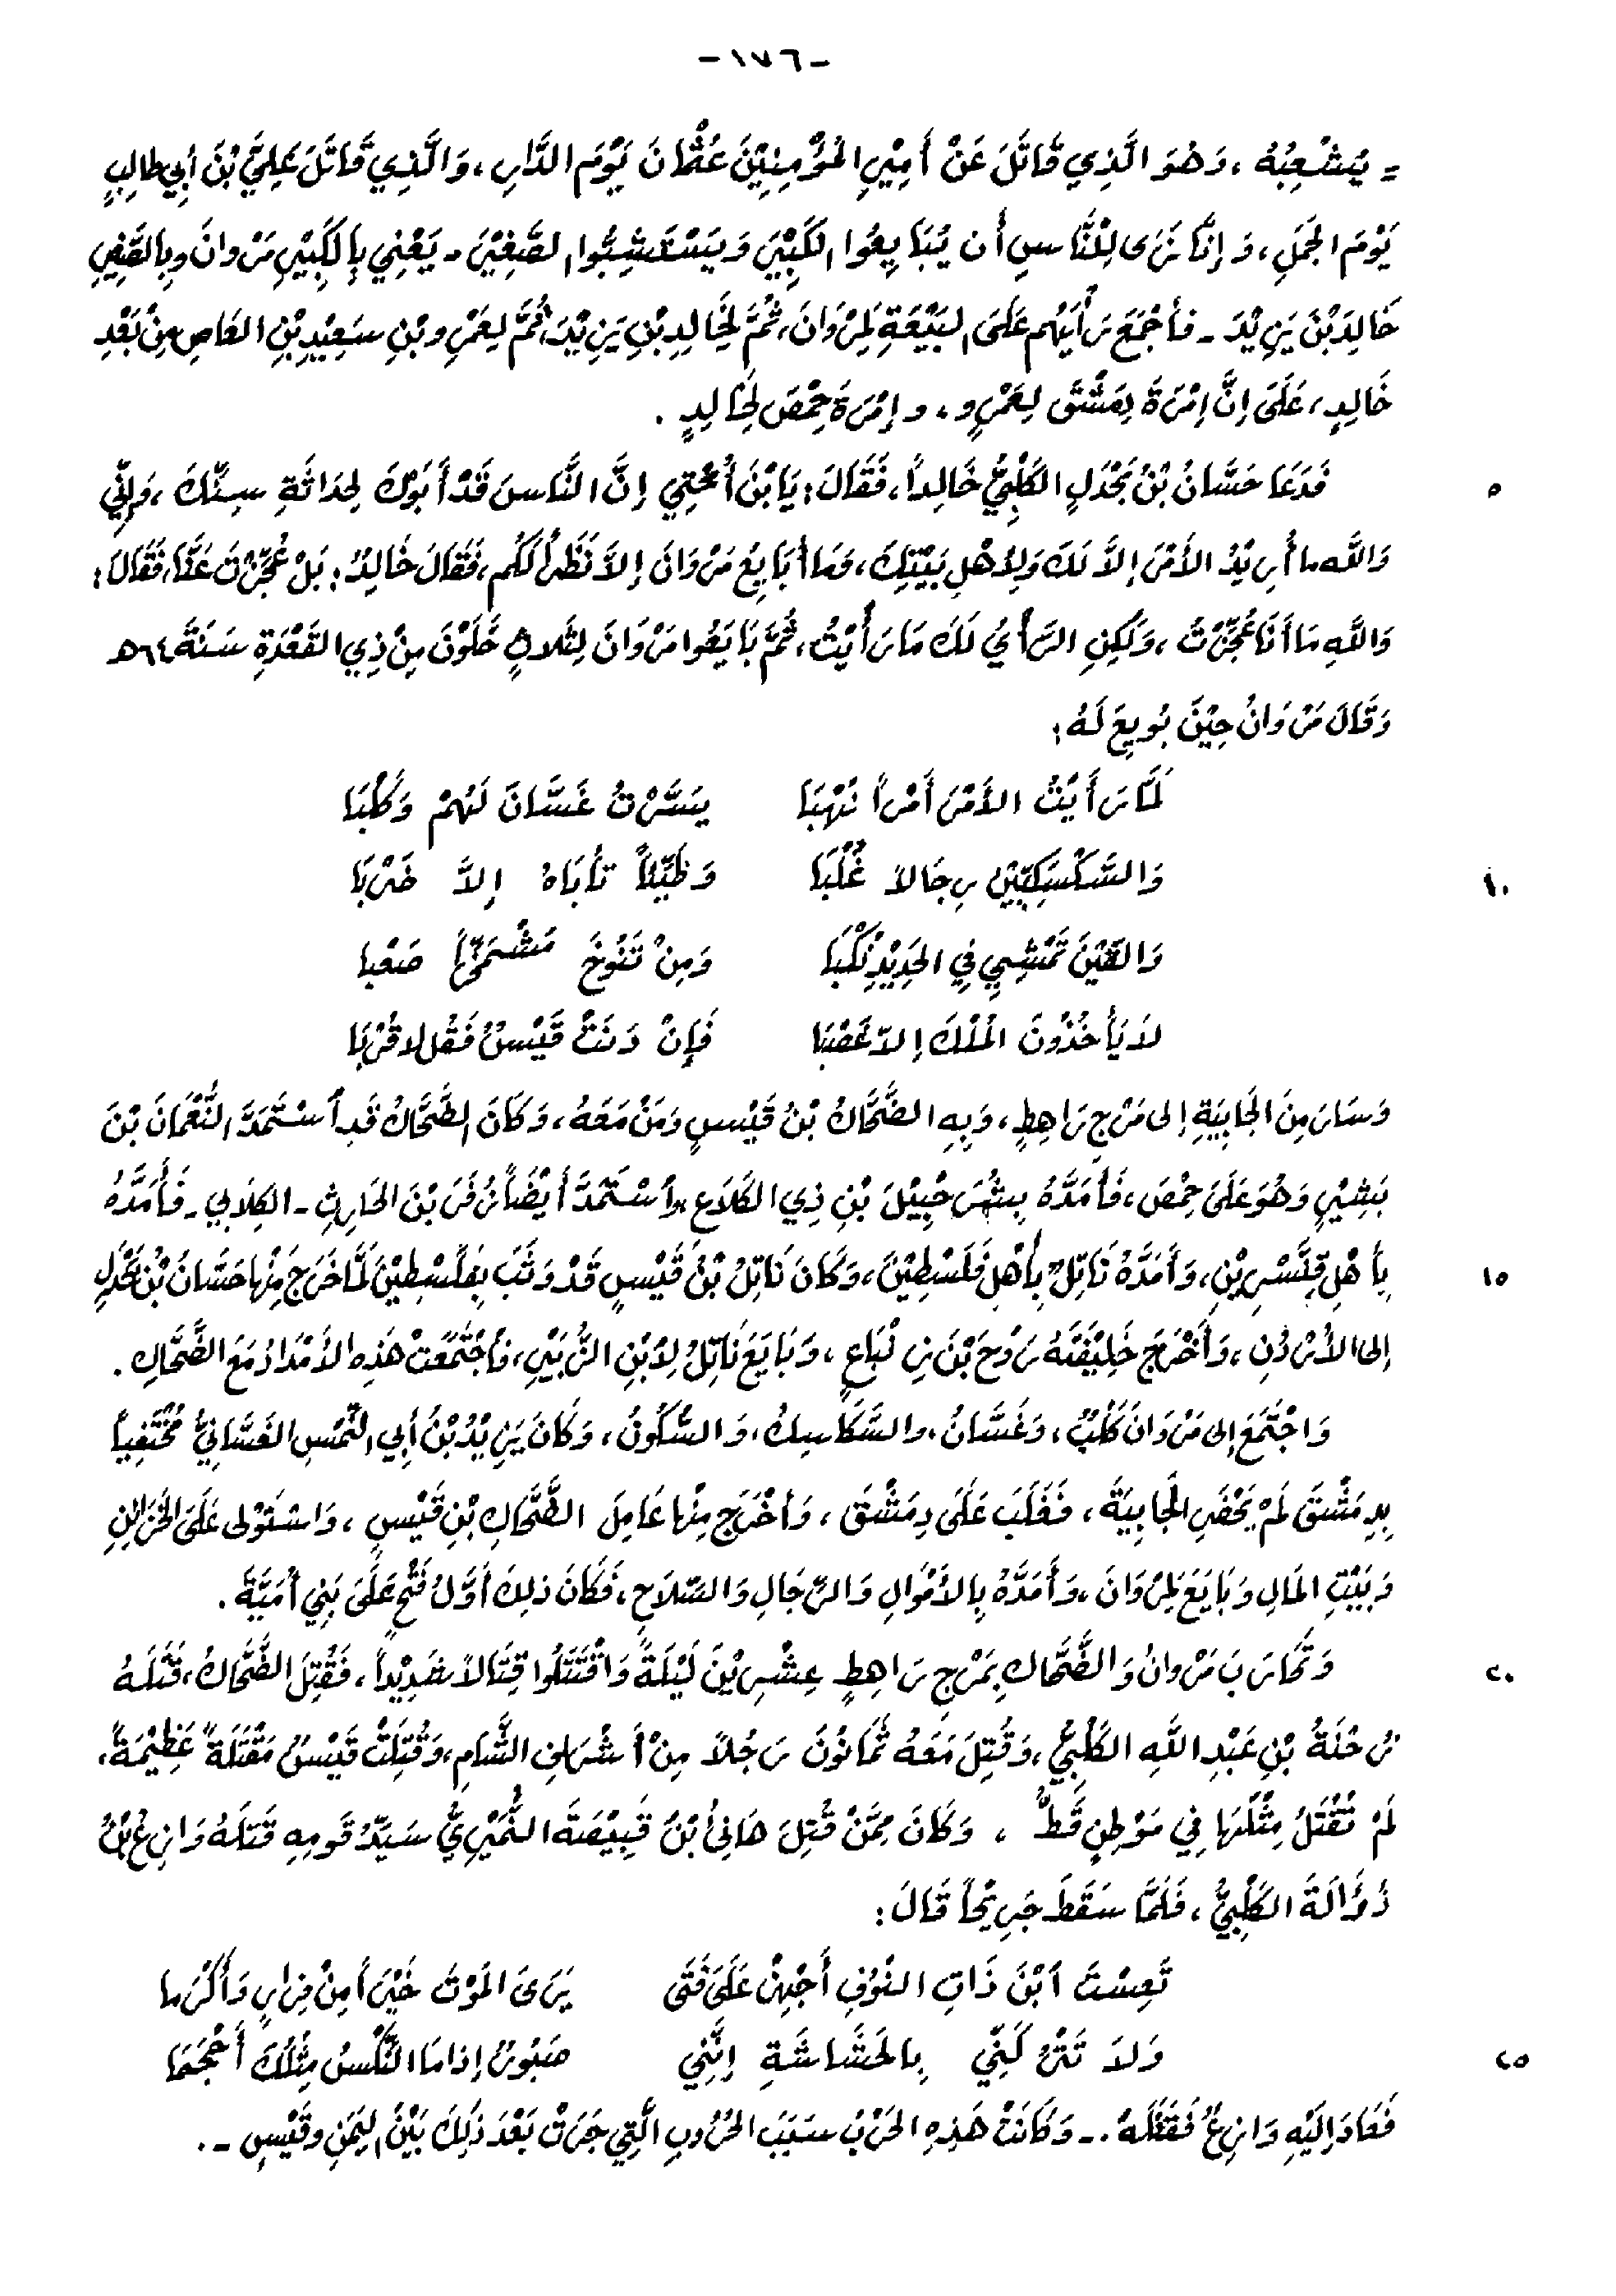 -١٧٦-
= يُشْعِبُهُ ، وَهُوَ الَّذِي قَاتَلَ عَنْ أَمِيْرِ المُؤْمِنِيْنَ عُثْمَانَ يَوْمَ الدَّارِ ، وَالَّذِي قَاتَلَ عَلِيَّ بْنَ أَبِي طالِبٍ
يَوْمَ الجَمَلِ ، وَإِنَّا نَرَى لِلْنَّاسِ أَن يُبَايِعُوا الكَبِيْرَ وَيَسْتَشِبُّوا الصَّغِيْرَ - يَعْنِي بِالكَبِيْرِ مَرْوانَ وبِالصَّغِيرِ
خَالِدَ بْنَ يَزِيْدَ - فأَجْمَعَ رَأْيُهُم عَلَى البَيْعَةِ لِمَرْوَانَ، ثُمَّ لِخَالِدِ بْنِ يَزِيْدَ، ثُمَّ لِعَمْرِو بْنِ سَعِيْدِ بْنِ العَاصِ مِنْ بَعْدِ
خَالِدٍ ، عَلَى إنَّ إمْرَةَ دِمَشْقَ لِعَمْرٍو ، وإمْرَةَ حِمْصَ لِخَالِدٍ .
٥ فَدَعَا حَسَّانُ بْنُ بَحْدَلٍ الكَلْبِيُّ خَالِداً، فَقَالَ: يَا بْنَ أُخْتِي إنَّ النَّاسَ قَدْ أَبَوْكَ لِحَدَاثَةِ سِنِّكَ ، وَإنِّي
وَاللَّهِ ما أُرِيْدُ الأَمْرَ إلاَّ لَكَ وَلِأهْلِ بَيْتِكَ ، وَمَا أُبَايِعُ مَرْوَانَ إلاَّ نَظَراً لَكُم، فَقَالَ خَالِدٌ: بَلْ عَجِزْتَ عَنَّا، فَقَالَ:
وَاللَّهِ مَا أَنَا عَجِزْتُ ، وَلَكِنِ الرَّأْيُ لَكَ مَا رَأَيْتُ ، ثُمَّ بَايَعُوا مَرْوَانَ لِثَلاثٍ خَلَوْنَ مِنْ ذِي القَعْدَةِ سَنَةَ ٦٤هـ
وَقَالَ مَرْوَانُ حِيْنَ بُويِعَ لَهُ :
لَمَّا رَأَيْتُ الأَمْرَ أَمْراً نَهْبَا يَسَّرْتُ غَسَّانَ لَهُمْ وَكَلْبَا
١٠ وَالسَّكْسَكِيِّيْنَ رِجَالاً غُلْبَا وَطَيِّئاً تَأْبَاهُ إلاَّ ضَرْبَا
وَالقَيْنَ تَمْشِي فِي الحَدِيْدِ نُكْبَا وَمِنْ تَنُوخَ مُشْمَخِرّاً صَعْبا
لاَ يَأْخُذُونَ المُلْكَ إلاّ غَصْبَا فَإِنْ دَنَتْ قَيْسٌ فَقُل لا قُرْبَا
وَسَارَ مِنَ الجَابِيَةِ إلى مَرْجِ رَاهِطٍ ، وَبِهِ الضَّحَّاكُ بْنُ قَيْسٍ وَمَنْ مَعَهُ ، وَكَانَ الضَّحَّاكُ قَدِ أسْتَمَدَّ النُّعْمَانَ بْنَ
بَشِيْرٍ وَهُوَ عَلَى حِمْصَ ، فَأَمَدَّهُ بِشُرَحْبِيْلَ بْنِ ذِي الكَلاَعِ، وأسْتَمَدَّ أَيْضَاً زُفَرَ بْنَ الحَارِثِ - الكِلَابي - فَأَمَدَّهُ
١٥ بِأَهْلِ قِنَّسْرِيْنِ، وَأَمَدَّهُ نَاتِلٌ بِأَهْلِ فَلَسْطِيْنَ، وَكَانَ نَاتِلُ بْنُ قَيْسٍ قَدْ وَثَبَ بِفَلَسْطِيْنَ لَمَّا خَرَجَ مِنْها حَسَّانُ بْنُ بَحْدَلٍ
إلى الأُرْدُنِ ، وَأَخْرَجَ خَلِيْفَتَهُ رَوْحَ بْنَ زِنْبَاعٍ ، وَبَايَعَ نَاتِلُ لِابْنِ الزُّبَيْرِ، فَأجْتَمَعَتْ هَذِهِ الأَمْدَادُ مَعَ الضَّحَّاكِ .
وَاجْتَمَعَ إلى مَرْوَانَ كَلْبٌ ، وَغَسَّانُ ، والسَّكَاسِكُ ، وَالسَّكُونُ ، وَكَانَ يَزِيْدُ بْنُ أَبِي النَّمْسِ الغَسَّانِيُّ مُخْتَفِياً
بِدِمَشْقَ لَمْ يَحْضَرِ الجَابِيَةَ ، فَغَلَبَ عَلَى دِمَشْقَ ، وَأخْرَجَ مِنْها عَامِلَ الضَّحَّاكِ بْنِ قَيْسٍ ، وَاسْتَوْلى عَلَى الخَزَائِنِ
وَبَيْتِ المَالِ وَبَايَعَ لِمَرْوَانَ ، وَأَمَدَّهُ بِالأَمْوَالِ وَالرِّجَالِ وَالسِّلاَحِ ، فَكَانَ ذلِكَ أَوَّلُ فَتْحٍ عَلَى بَنِي أُمَيَّةَ .
٢٠ وَتَحَارَبَ مَرْوانُ وَالضَّحَّاكِ بِمَرْجِ رَاهِطٍ عِشْرِيْنَ لَيْلَةً وَاقْتَتَلُوا قِتَالاً شَدِيْداً ، فَقُتِلَ الضَّحَّاكُ ، قَتَلَهُ
زُحْنَةُ بْنِ عَبْدِ اللَّهِ الكَلْبِيُّ ، وَقُتِلَ مَعَهُ ثَمَانُونَ رَجُلاً مِنْ أَشْرَافِ الشَّامِ، وَقُتِلَتْ قَيْسٌ مَقْتَلَةً عَظِيْمَةً ،
لَمْ تُقْتَلُ مِثْلَهَا فِي مَوْطِنٍ قَطُّ ، وَكَانَ مِمَّنْ قُتِلَ هَانِئُ بْنُ قَبِيْصَةَ النُّمَيْرِيُّ سَيِّدُ قَومِهِ قَتَلَهُ وَازِعُ بْنُ
ذُؤَالَةَ الكَلْبِيُّ ، فَلَمَّا سَقَطَ جَرِيْحَاً قَالَ :
تَعِسْتَ أبْنَ ذَاتِ النَّوْفِ أَجْهِزْ عَلَى فَتَى يَرَى المَوْتَ خَيْراً مِنْ فِرَارٍ وَأَكْرَما
٢٥ وَلاَ تَتْرُكَنِّي بِالحَشَاشَةِ إنَّنِي صَبُورٌ إذا مَا النَّكْسُ مِثْلُكَ أَحْجَمَا
فَعَادَ إلَيْهِ وَازِعٌ فَقَتَلَهُ . - وَكَانَتْ هَذِهِ الحَرْبُ سَبَبَ الحُرُوبِ الَّتِي جَرَتْ بَعْدَ ذَلِكَ بَيْنَ اليَمَنِ وقَيْسٍ - .